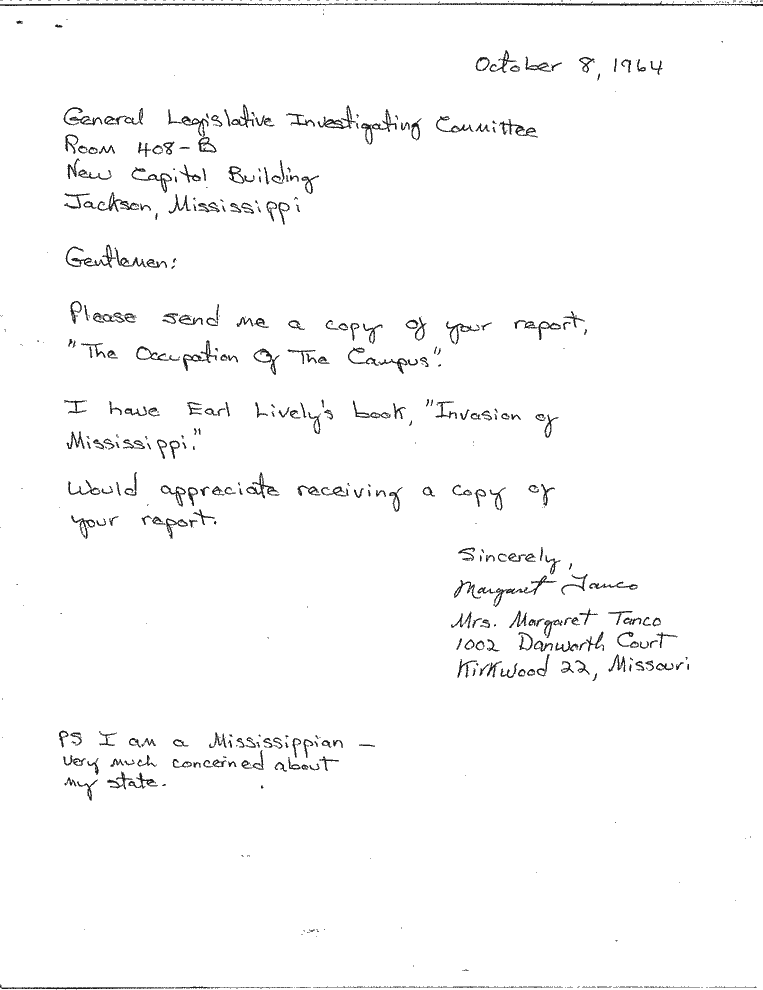 October 8, 1964
General Legislative Investigating Committee
Room 408-B
New Capitol Building
Jackson, Mississippi
Gentlemen:
Please send me a copy of your report,
"The Occupation Of The Campus".
I have Earl Lively's book, "Invasion of
Mississippi."
Would appreciate receiving a copy of
your report.
Sincerely,
Margaret Tanco
Mrs. Margaret Tanco
1002 Danworth Court
Kirkwood 22, Missouri
PS I am a Mississippian —
very much concerned about
my state.